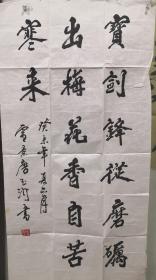 寶劍鋒從磨礪
出梅花香自苦
寒来
癸未年
書